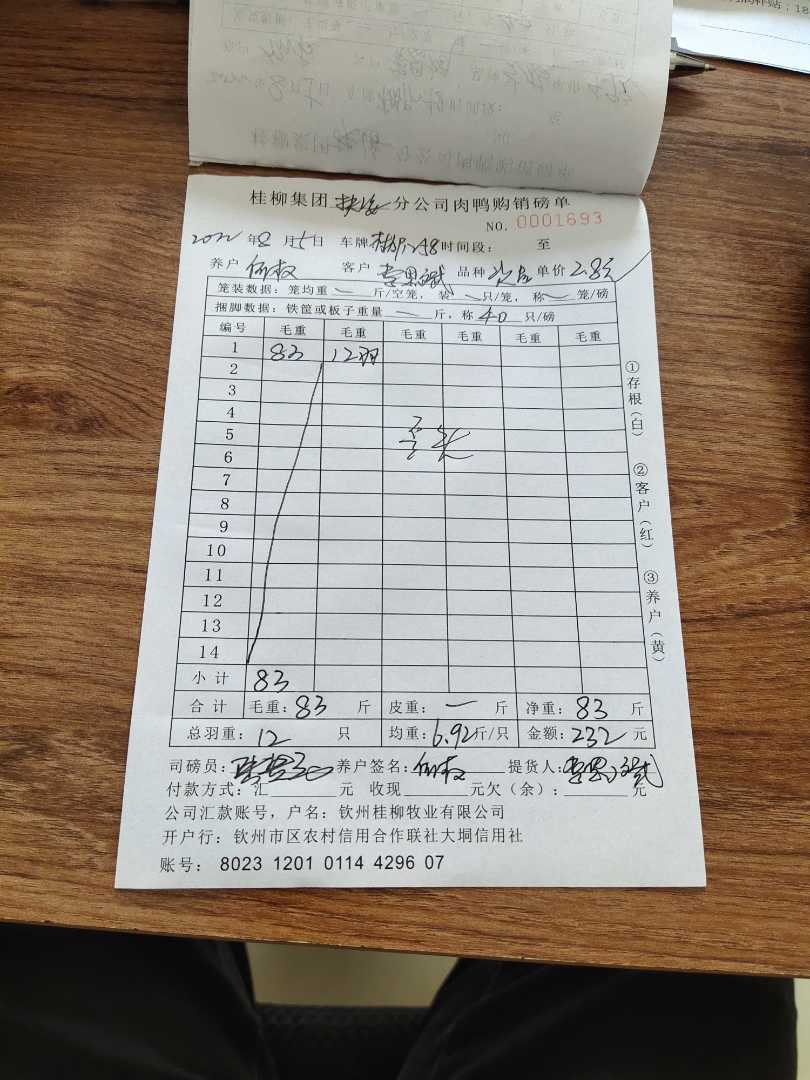 桂柳集团 分公司肉鸭购销磅单
NO. 0001693
2022年8月5日 车牌 时间段: 至
养户 何权 客户 品种 次品 单价 2.8元
笼装数据: 笼均重 — 斤/空笼, 装 — 只/笼, 称 — 笼/磅
捆脚数据: 铁筐或板子重量 — 斤, 称 40 只/磅
编号 毛重 毛重 毛重 毛重 毛重 毛重
1 83 12羽
2
3
4
5
6
7
8
9
10
11
12
13
14
小计 83
合计 毛重: 83 斤 皮重: — 斤 净重: 83 斤
总羽重: 12 只 均重: 6.92斤/只 金额: 232 元
司磅员: 养户签名: 何权 提货人:
付款方式: 汇 元 收现 元欠(余): 元
公司汇款账号, 户名: 钦州桂柳牧业有限公司
开户行: 钦州市区农村信用合作联社大垌信用社
账号: 8023 1201 0114 4296 07
①存根(白)
②客户(红)
③养户(黄)